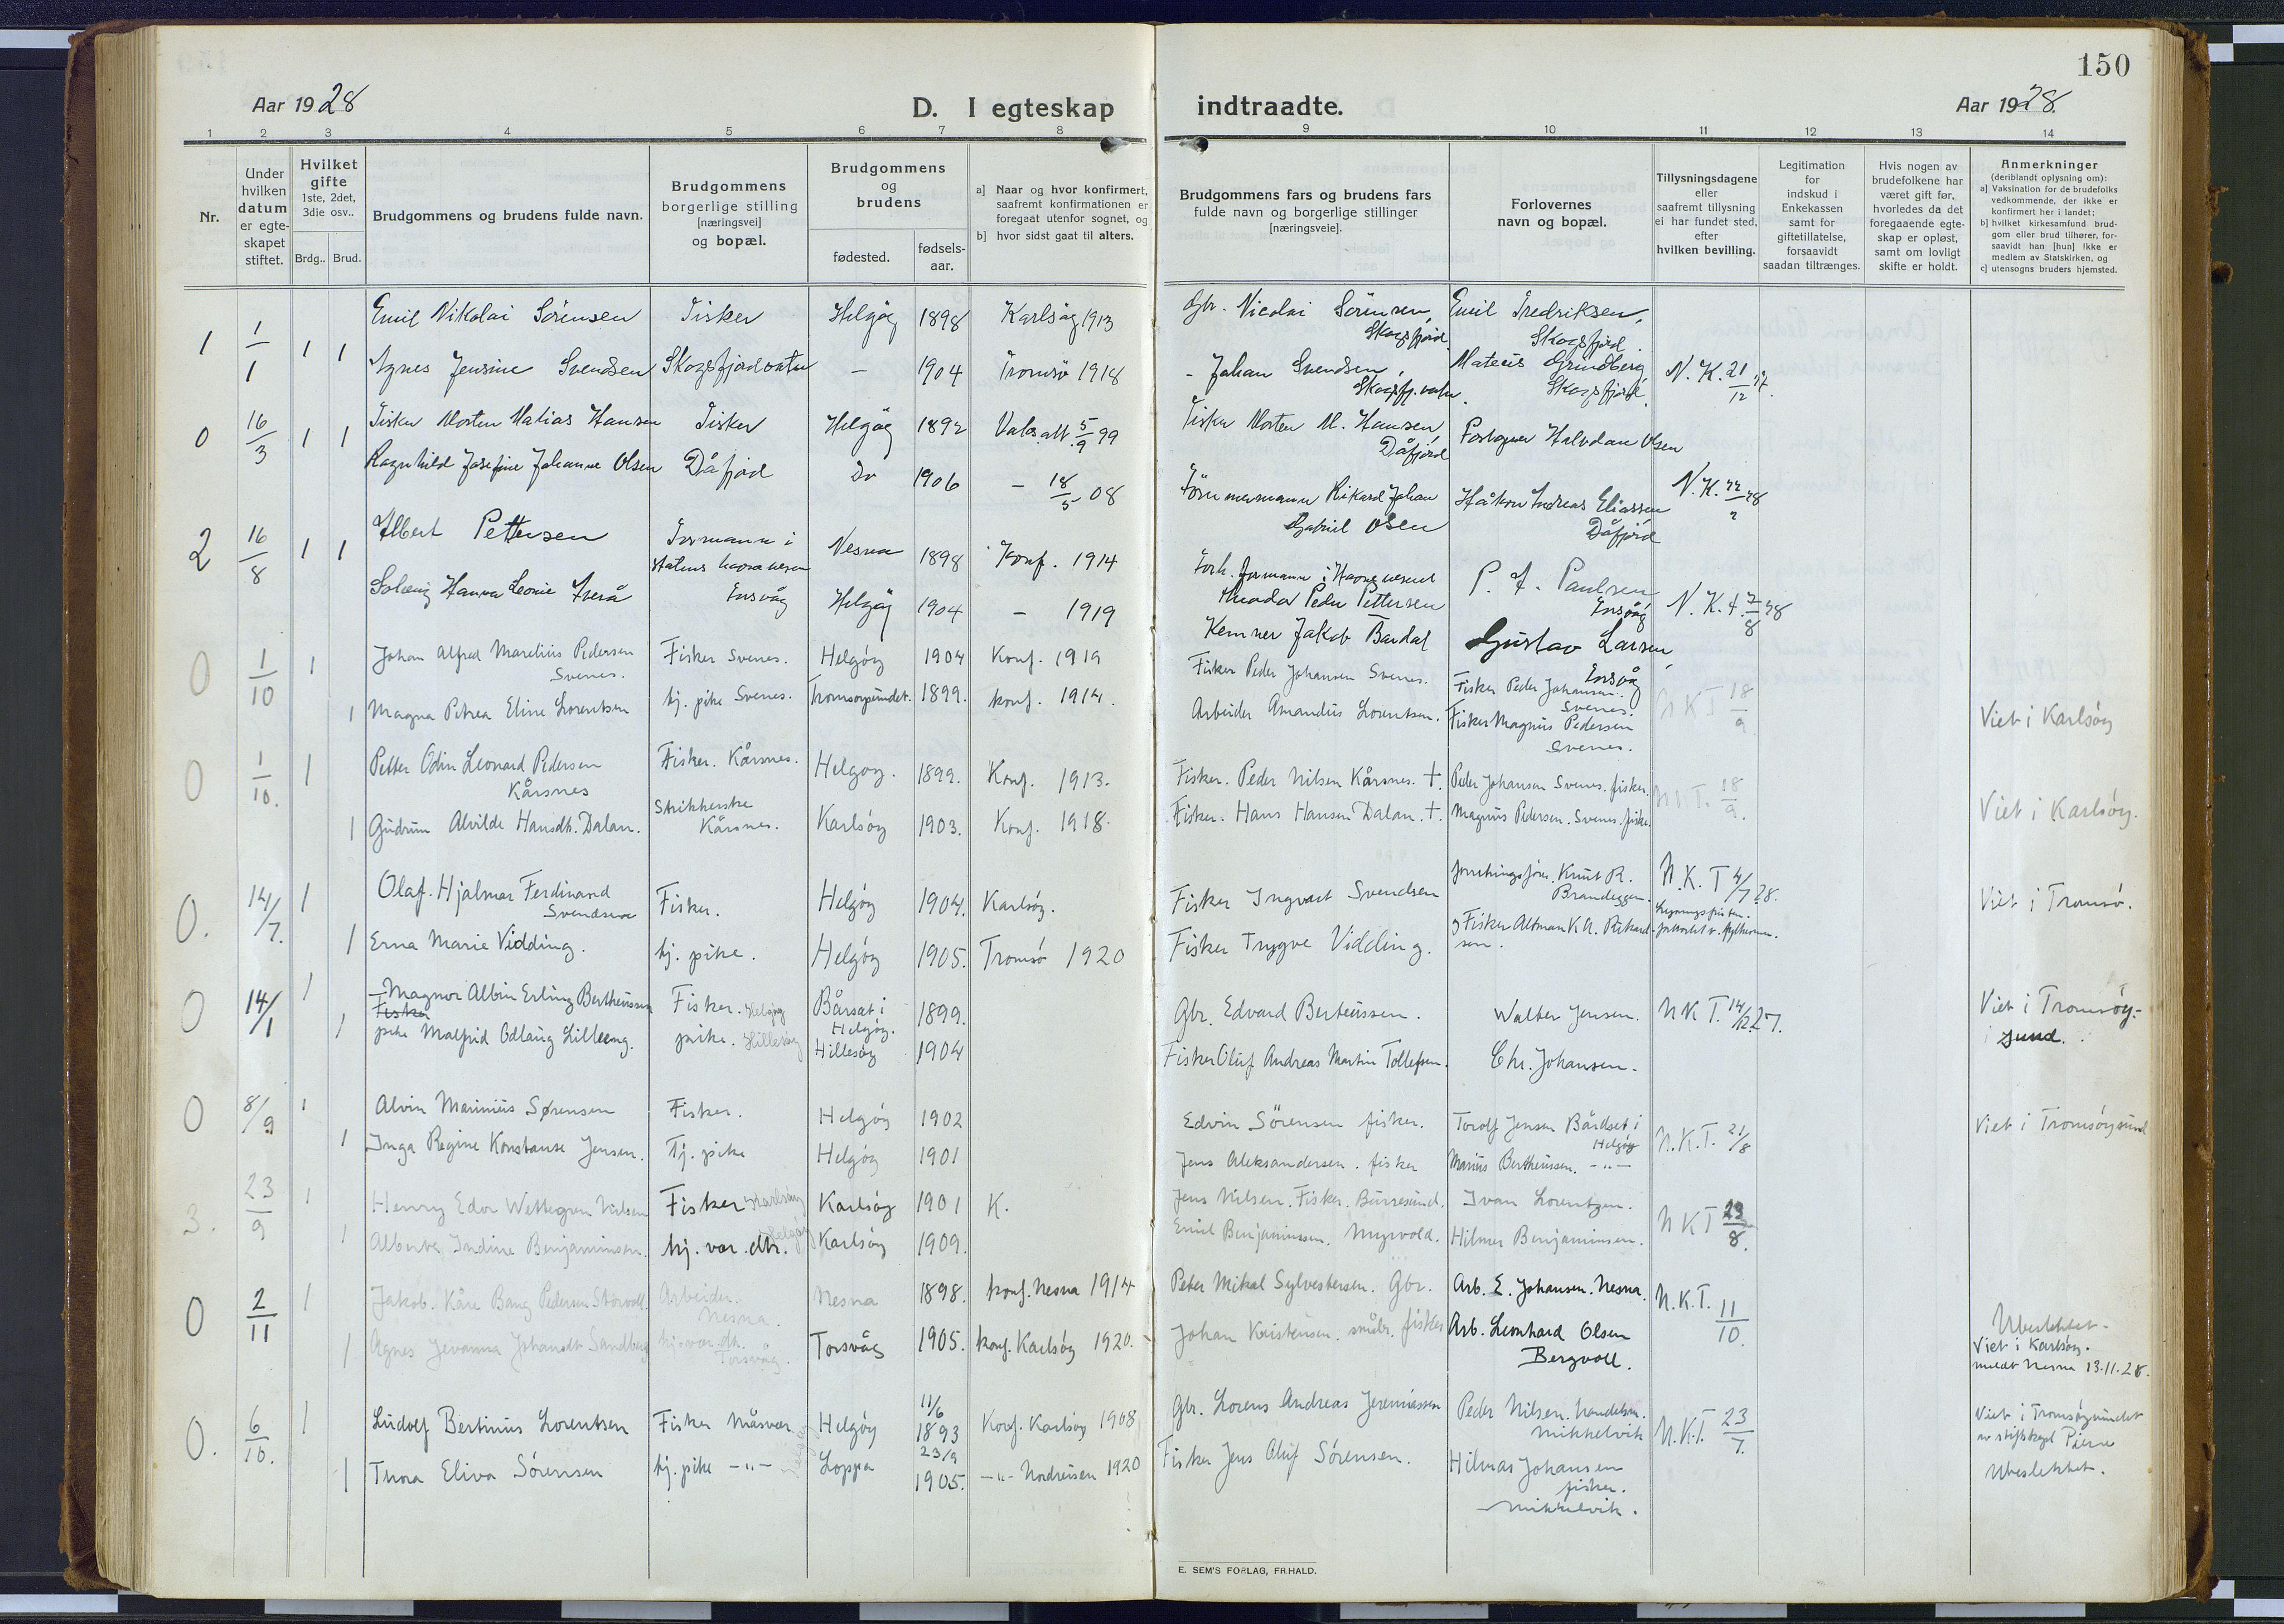 150
Aar 1928
D. I egteskap indtraadte.
Aar 1928.
1 2 3 4 5 6 7 8 9 10 11 12 13 14
Nr.
Under hvilken datum er egte-skapet stiftet.
Hvilket gifte 1ste, 2det, 3die osv..
Brdg.. Brud.
Brudgommens og brudens fulde navn.
Brudgommens borgerlige stilling [næringsvei] og bopæl.
Brudgommens og brudens
fødested.
fødsels-aar.
a] Naar og hvor konfirmert, saafremt konfirmationen er foregaat utenfor sognet, og
b] hvor sidst gaat til alters.
Brudgommens fars og brudens fars fulde navn og borgerlige stillinger [næringsveie].
Forlovernes navn og bopæl.
Tillysningsdagene eller saafremt tillysning ei har fundet sted, efter hvilken bevilling.
Legitimation for indskud i Enkekassen samt for giftetillatelse, forsaavidt saadan tiltrænges.
Hvis nogen av brudefolkene har været gift før, hvorledes da det foregaaende egte-skap er opløst, samt om lovligt skifte er holdt.
Anmerkninger (deriblandt oplysning om):
a] Vaksination for de brudefolks vedkommende, der ikke er konfirmert her i landet;
b] hvilket kirkesamfund brud-gom eller brud tilhører, for-saavidt han [hun] ikke er medlem av Statskirken, og
c] utensogns bruders hjemsted.
1 1/1 1 1 Emil Nikolai Sörensen Fisker Helgöy 1898 Karlsöy 1913 Gbr. Nicolai Sörensen, Skogsfjord Emil Fredriksen, Skogsfjord.
Agnes Jensine Svendsen Skogsfjordvatn — 1904 Tromsö 1918 - Johan Svendsen, Skogsfj.vatn. Mateus Grundberg Skogsfjord N. K. 21/12 27.
0 16/3 1 1 Fisker Morten Matias Hansen Fisker Helgöy 1892 5/9 99 Fisker Morten M. Hansen, Dåfjord Halvdan Olsen
Ragnhild Josefine Johanne Olsen Dåfjord Do 1906 — 18/5 08 Rikard Johan Gabriel Olsen Håkon Andreas Eliassen Dåfjord N. K. 28
2 16/8 1 1 Albert Pettersen Formann i statens havnevesen Nesna 1898 Konf. 1914 formann i Havnevesenet Peder Pettersen P. J. Paulsen Ensvåg
Solveig Hanna Leonie Ensvåg Helgöy 1904 — 1919 Kemner Jakob Bardal Gustav Larsen, Ensvåg N. K. 7/8 28
0 1/10 1 Johan Alfred Marelius Pedersen Svenes. Fisker Svenes. Helgöy 1904 Konf. 1919 Fisker Peder Johansen Svenes. Fisker Peder Johansen. Svenes.
1 Magna Petrea Eline Lorentsen tj. pike Svenes. Tromsöysundet. 1899. konf. 1914. Arbeider Amandus Lorentsen. Fisker Magnus Pedersen Svenes. N K T 18/9 Viet i Karlsöy
0 1/10. 1 Petter Odin Leonard Pedersen Kårsnes Fisker. Kårsnes. Helgöy. 1899. Konf. 1913. Fisker. Peder Nilsen Kårsnes. †. Peder Johansen Svenes. fisker.
1 Gudrun Alvilde Hansdt. Dalan. Strikkerske Kårsnes. Karlsöy 1903. Konf. 1918. Fisker. Hans Hansen Dalan. †. Magnus Pedersen. Svenes. fisker. N.K.T. 18/9. Viet i Karlsöy.
0. 14/7. 1 Olaf Hjalmar Ferdinand Svendsen Fisker. Helgöy 1904. Karlsöy. Fisker Ingvart Svendsen forretningsfører. Knut R. Brandeggen. N.K. T 4/7 28.
1 Erna Marie Vidding. tj. pike. Helgöy 1905. Tromsö 1920 Fisker Trygve Vidding. Fisker Altman K.A. Rikardsen. Viet i Tromsö.
0 14/1 1 Magnor Albin Erling Bertheussen Fisker. Helgöy Bårset i Helgöy. 1899. Gbr. Edvard Berteussen. Walter Jensen. N K T. 14/12 27. Viet i Tromsöy-sund.
Fisker
1 pike Malfrid Odlaug Lilleeng. pike. Hillesöy Hillesöy 1904 Fisker Oluf Andreas Martin Tollefsen. Chr. Johansen.
0 8/9 1 Alvin Marinius Sørensen Fisker. Helgöy 1902 Edvin Sörensen fisker. Torolf Jensen Bårdset i Helgöy N.K.T. 21/8 Viet i Tromsöysund
1 Inga Regine Konstanse Jensen. Tj. pike Helgöy 1901 Jens Aleksandersen. fisker Marius Bertheussen. -"-
3. 23/9 1 Henry Edor Wettegren Nilsen Fisker Karlsöy Karlsöy 1901 K. Jens Nilsen. Fisker. Burresund. Ivan Lorentzen. N K T 23/8.
1 Alberte Indine Benjaminsen. tj. var. dtr. Helgöy Karlsöy 1909. Emil Benjaminsen. Myrvold. Hilmer Benjaminsen.
0 2/11 1 Jakob. Kåre Bang Pedersen Storvoll. Arbeider. Nesna. Nesna 1898. konf. Nesna 1914 Peter Mikal Sylvestersen. Gbr. Arb. E. Johansen. Nesna. N.K.T. 11/10.
1 Agnes Jevanna Johansdt. Sandberg Torsvåg. Torsvåg 1905. konf. Karlsöy 1920. Johan Kristensen. småbr. fisker Arb. Leonhard Olsen Bergvoll. Ubeslektet. Viet i Karlsöy. meldt Nesna 13.11.28.
0. 6/10. 1 Ludolf Bertinius Lorentsen Fisker Måsvær Helgöy 11/6 1893 Konf. Karlsöy 1908 Gbr. Lorens Andreas Jeremiassen Peder Nilsen. handelsm. Mikkelvik N.K.T. 23/7. Viet i Tromsöysundet av stiftskapl.
1 Thora Eliva Sörensen tj. pike -"- Helgöy Loppa 23/9 1905. -"- Nordreisen 1920 Fisker Jens Oluf Sörensen. Hilmar Johansen fisker. Mikkelvik. Ubeslektet.
E. SEM'S FORLAG, FR.HALD.